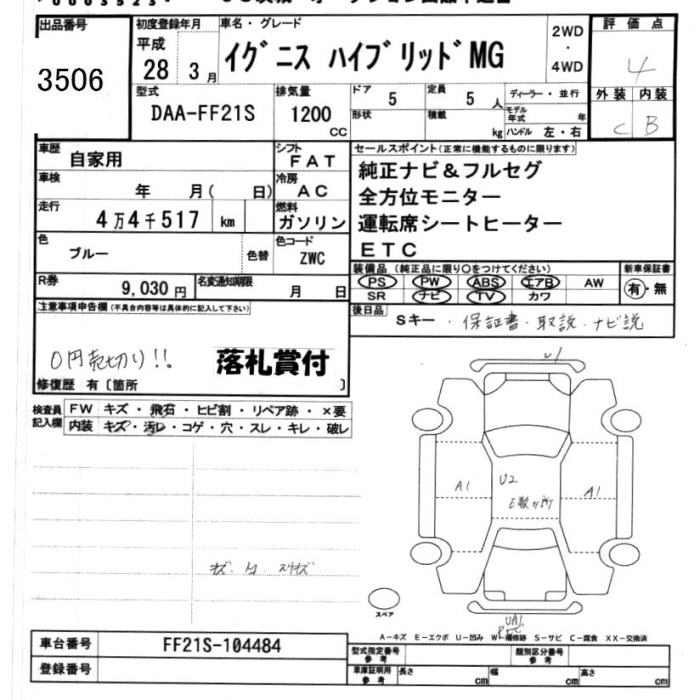 出品番号
3506
初度登録年月
平成
28 3月
車名・グレード
イグニス ハイブリッドMG
2WD
・
4WD
評価点
4
外装 内装
C B
型式
DAA-FF21S
排気量
1200
CC
ドア
5
形状
定員
5 人
積載
kg
ディーラー・並行
モデル年式 年
ハンドル 左・右
車歴
自家用
シフト
FAT
車検
年 月( 日)
冷房
AC
走行
4万4千517 km
燃料
ガソリン
色
ブルー
色替
色コード
ZWC
R券
9,030円
名変通知期限
月 日
セールスポイント(正常に機能するものに限ります)
純正ナビ&フルセグ
全方位モニター
運転席シートヒーター
ETC
装備品(純正品に限り○をつけてください)
PS PW ABS エアB AW
SR ナビ TV カワ
新車保証書
有・無
後日品
Sキー・保証書・取説・ナビ説
注意事項申告欄(不具合内容等は具体的に記入して下さい)
0円売切り!!
落札賞付
修復歴 有〔箇所 〕
検査員
記入欄
FW キズ・飛石・ヒビ割・リペア跡・×要
内装 キズ・汚レ・コゲ・穴・スレ・キレ・破レ
U1
A1
U2
E数ヶ所
A1
スペア
UA1
A-キズ E-エクボ U-凹み W-補修跡 S-サビ C-腐食 XX-交換済
車台番号
FF21S-104484
登録番号
型式指定番号
参考
類別区分番号
参考
車庫証明用
参考
長さ cm
幅 cm
高さ cm